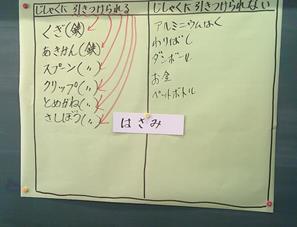 じしゃくに 引きつけられる
くぎ(鉄)
あきかん(鉄)
スプーン(〃)
クリップ(〃)
とめがね(〃)
さしぼう(〃)
じしゃくに 引きつけられない
アルミニウムはく
わりばし
ダンボール
お金
ペットボトル
はさみ